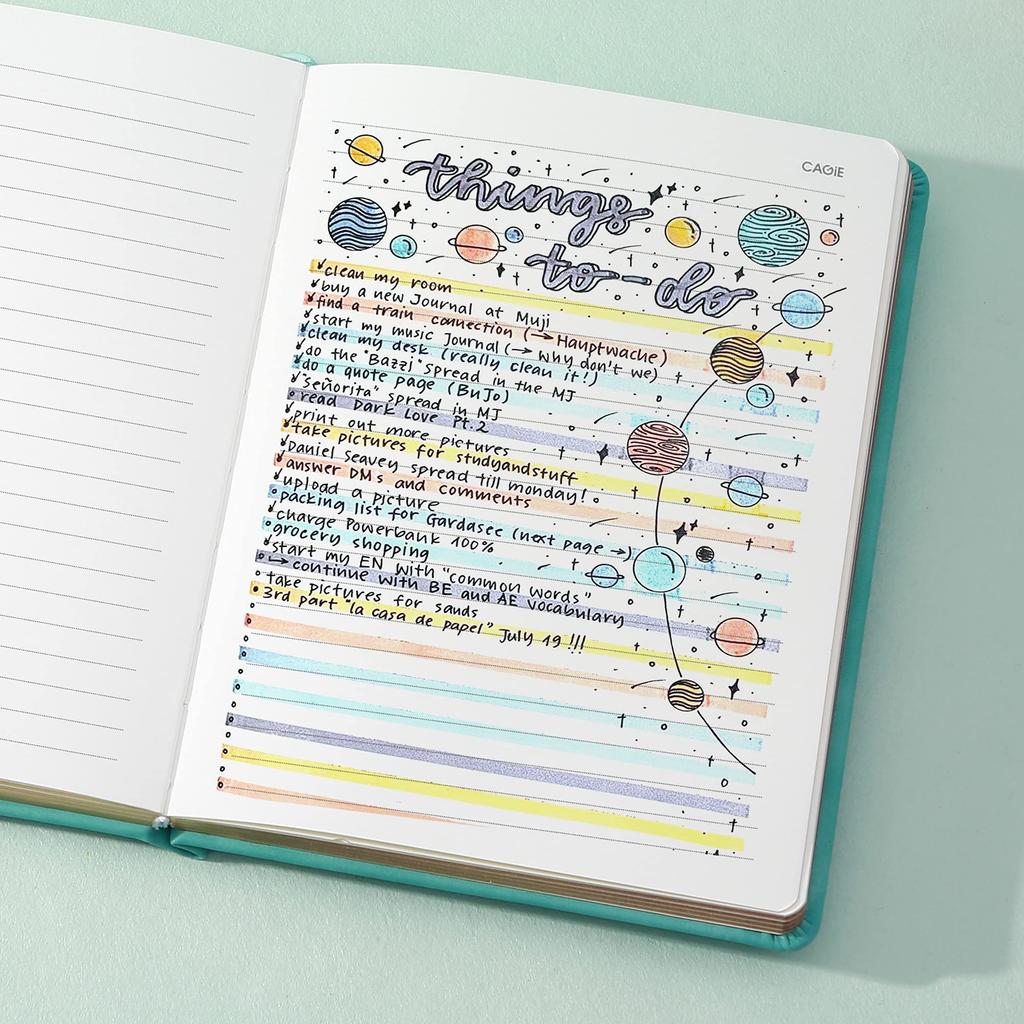 CAGIE
things
to-do
clean my room
buy a new Journal at Muji
find a train connection (→ Hauptwache)
start my music Journal (→ why don't we)
clean my desk (really clean it!)
do the "Bazzi" spread in the MJ
do a quote page (BuJo)
"Señorita" spread in MJ
read Dark Love Pt.2
print out more pictures
take pictures for studyandstuff
Daniel Seavey spread till monday!
answer DMs and comments
upload a picture
packing list for Gardasee (next page →)
charge Powerbank 100%
grocery shopping
start my EN with "common words"
↳ continue with BE and AE vocabulary
take pictures for sands
3rd part "la casa de papel" July 19 !!!